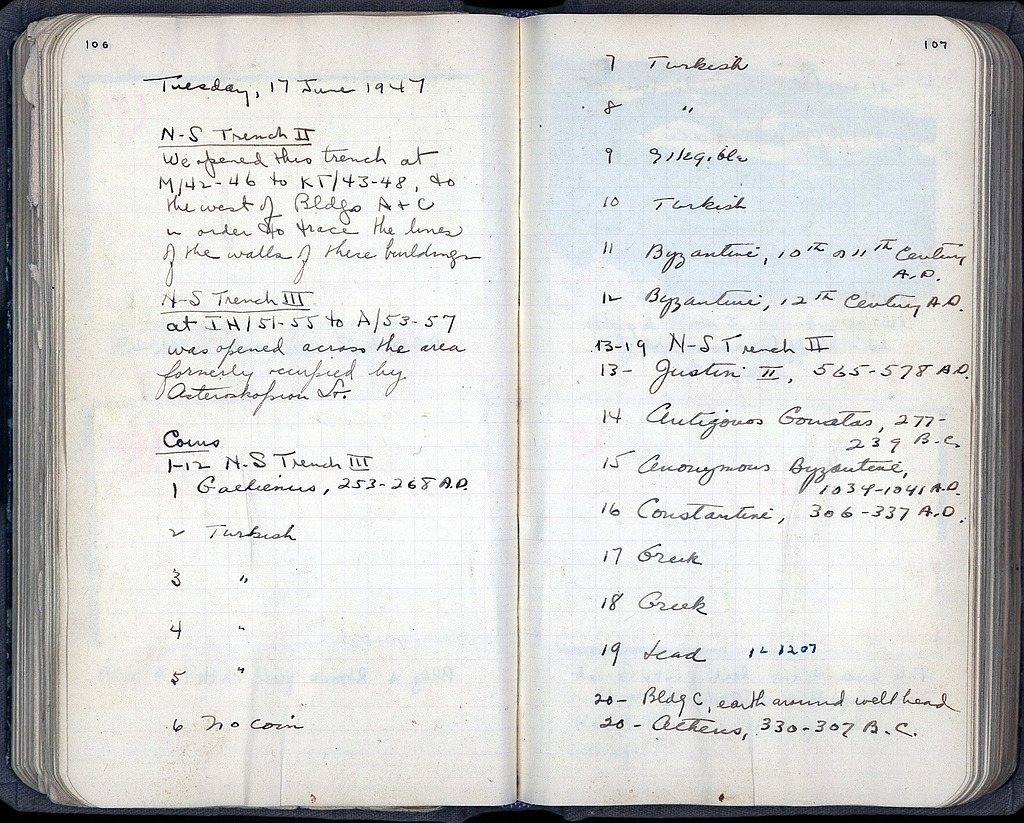 106
Tuesday, 17 June 1947
N-S Trench II
We opened this trench at
M/42-46 to KT/43-48, to
the west of Bldgs A + C
in order to trace the lines
of the walls of these buildings
N-S Trench III
at IH/51-55 to A/53-57
was opened across the area
formerly occupied by
Asteroskopion St.
Coins
1-12 N-S Trench III
1 Gallienus, 253-268 A.D.
2 Turkish
3 "
4 "
5 "
6 No coin
107
7 Turkish
8 "
9 Illegible
10 Turkish
11 Byzantine, 10th or 11th Century
A.D.
12 Byzantine, 12th Century A.D.
13-19 N-S Trench II
13- Justin II, 565-578 A.D.
14 Antigonos Gonatas, 277-
239 B.C.
15 Anonymous Byzantine,
1034-1041 A.D.
16 Constantine, 306-337 A.D.
17 Greek
18 Greek
19 Lead IL 1207
20- Bldg C, earth around well head
20- Athens, 330-307 B.C.